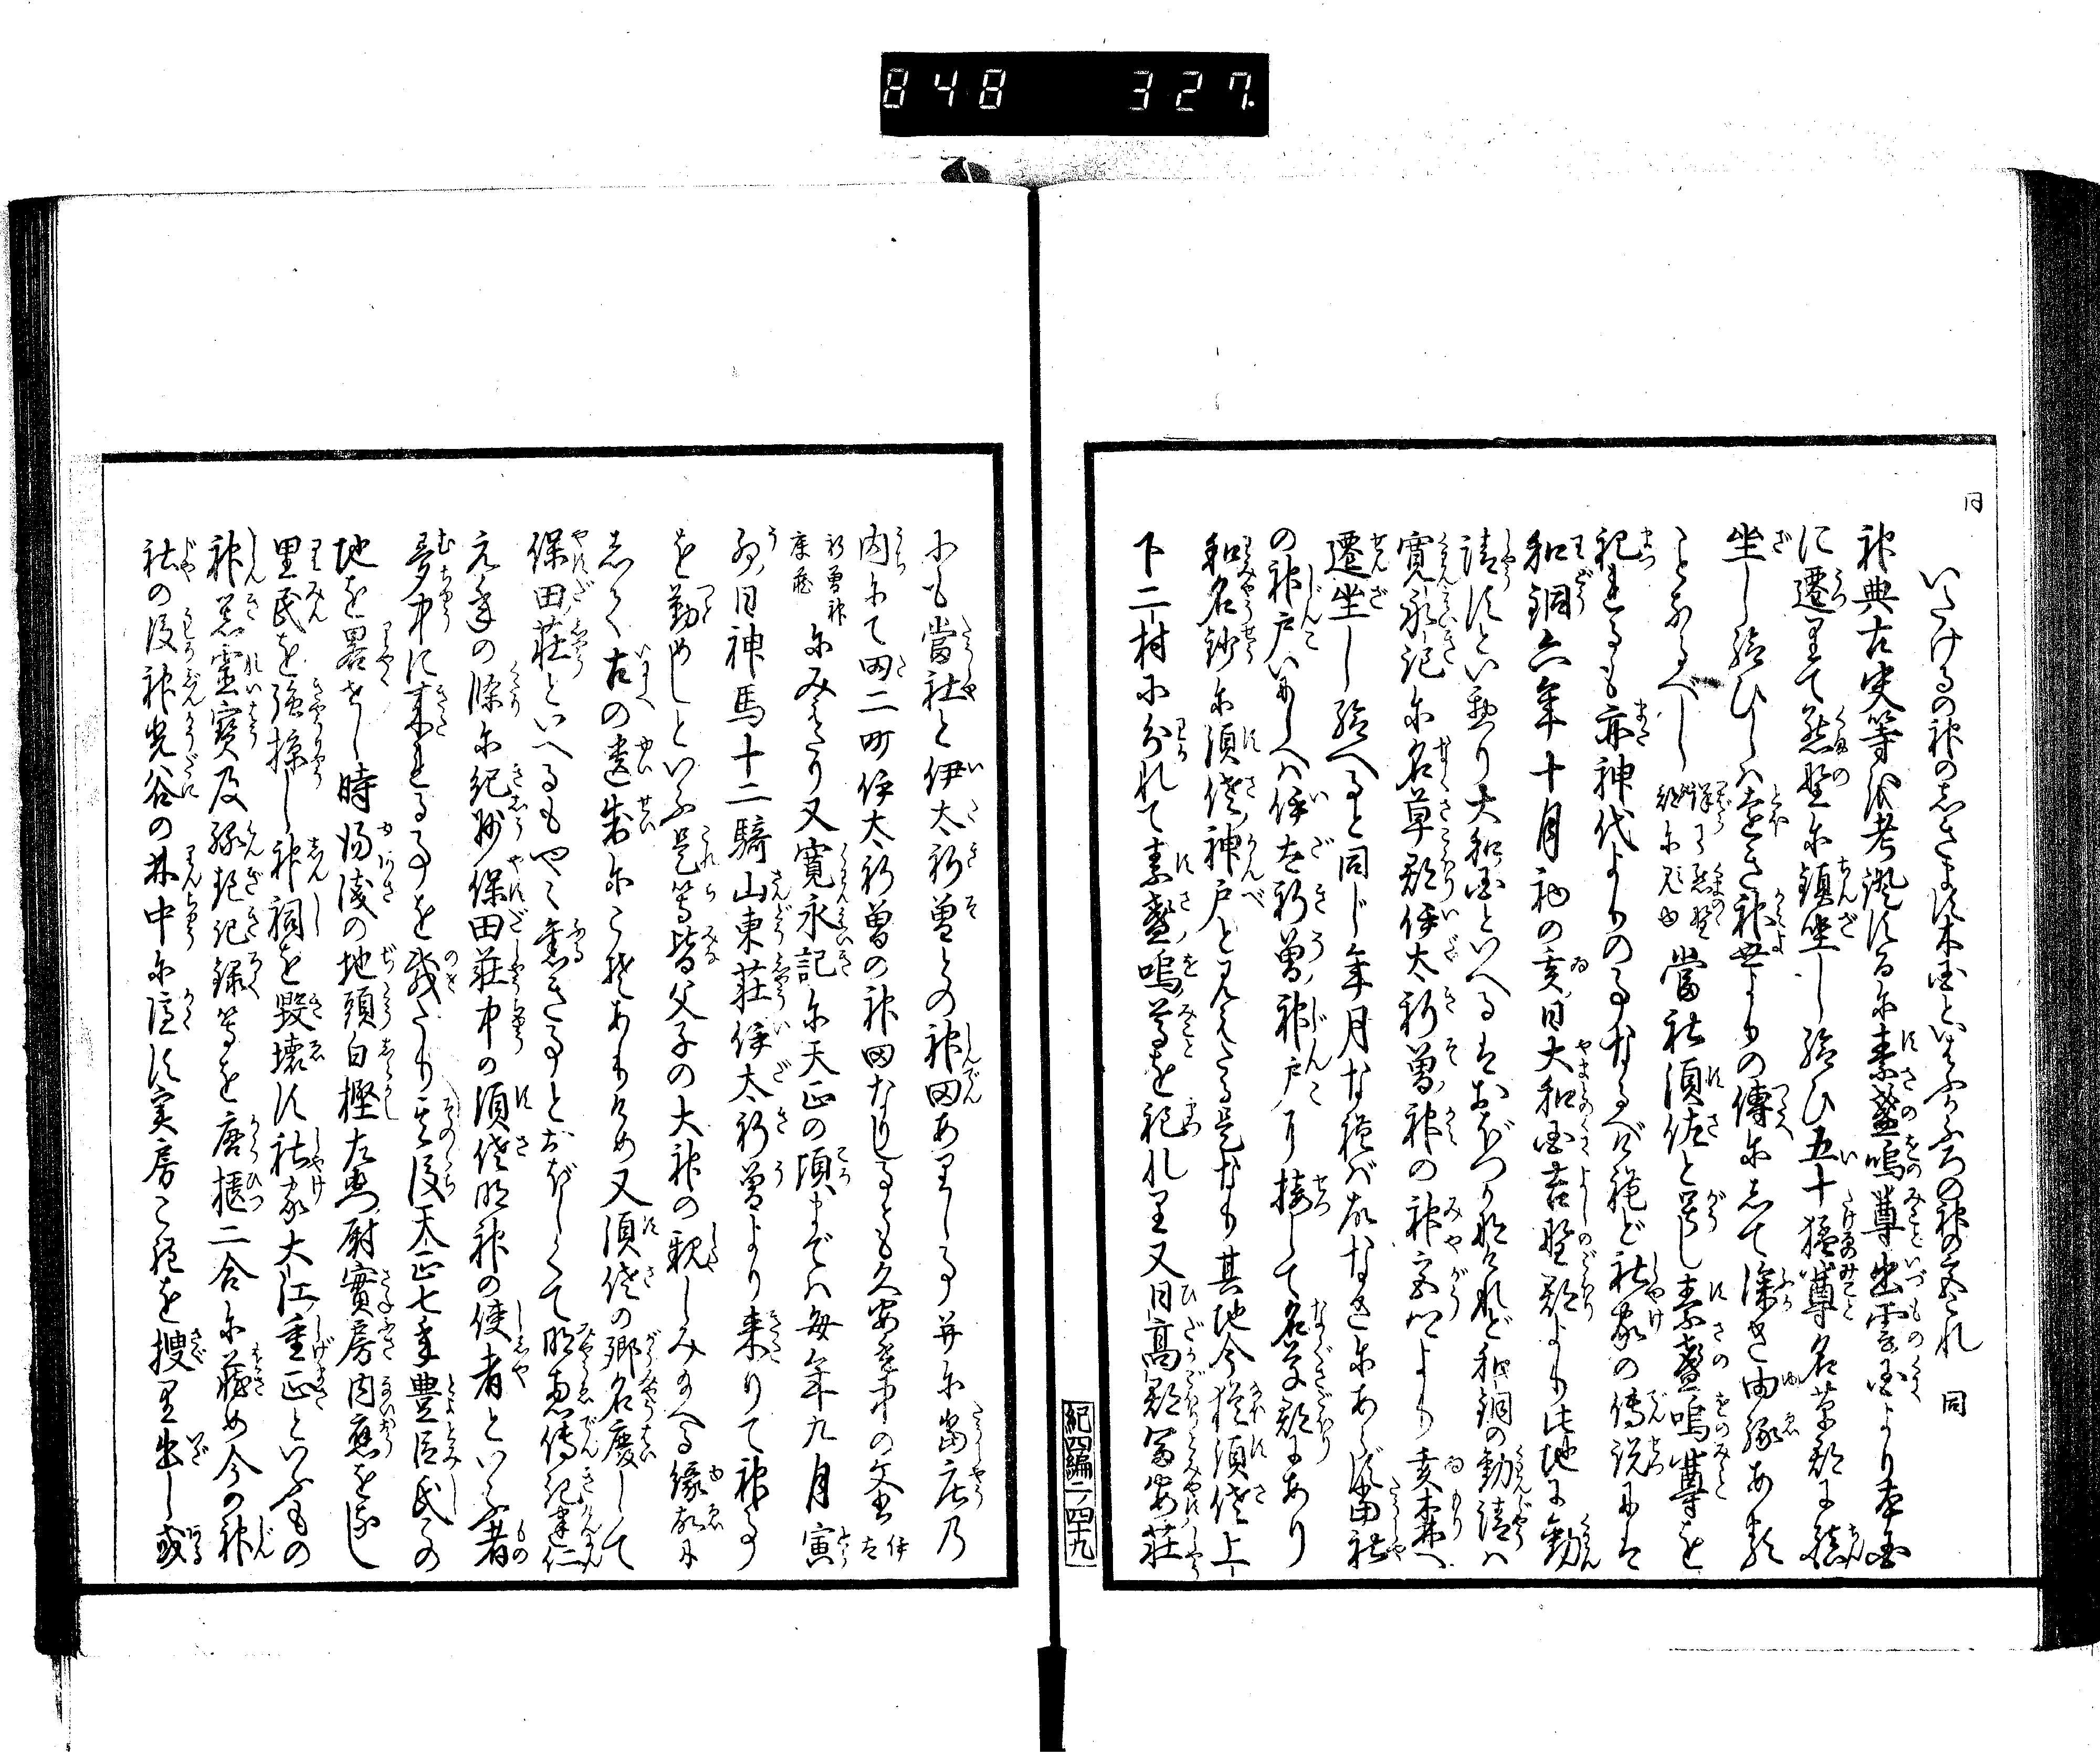 848 327
同
いたけるの神のしきます木国といふからの神の名これ 同
神典古史等を考證するに素盞嗚尊出雲国より本国
に遷りて熊野に鎮坐し給ひ五十猛尊名草郡に鎮
坐し給ひしは遠き神世よりの傳にして深き由縁ある
ことなるべし 詳に熊野部に見ゆ 當社須佐と号し素盞嗚尊を
祀れるも亦神代よりの事なるべけれど社家の傳説には
和銅六年十月初の亥日大和国吉野郡より此地に勸
請すといへり大和国といへるはおぼつかなけれど和銅の勸請は
寛永記に名草郡伊太祈曽神の神宮はより亥森へ
遷坐し給へると同じ年月なれば故なきにあらず當社
の神戸いにしへは伊太祈曽神戸に接して名草郡にあり
和名鈔に須佐神戸と見えたる是なり其地今猶須佐上
下二村に分れて素盞嗚尊を祀れり又日高郡富安荘
紀四編二ノ四十九
にも當社と伊太祈曽との神田ありし事并に當庄乃
内にて田二町伊太祈曽の神田なりしとも久安年中の文書 伊太
祈曽神庫蔵 にみえたり又寛永記に天正の頃までは毎年九月寅
卯日神馬十二騎山東荘伊太祈曽より来りて神事
を勤めしといふ是等皆父子の大神の親しみのへる縁故に
しるく古の遺制にこそありけめ又須佐の郷名廢して
保田荘といへるもやゝ舊き事とおぼしくて明恵傳記建仁
元年の條に紀州保田荘中の須佐明神の使者といふ者
夢中に来れる事を載たり其後天正七年豊臣氏この
地を畧せし時湯浅の地頭白樫左衛門尉實房内應をなし
里民を強掠し神祠を毀壊す社家大江重正といふもの
神器靈寶及縁起記録等を唐櫃二合に蔵め今の神
社の後神光谷の林中に隱す実房これを捜り出し或